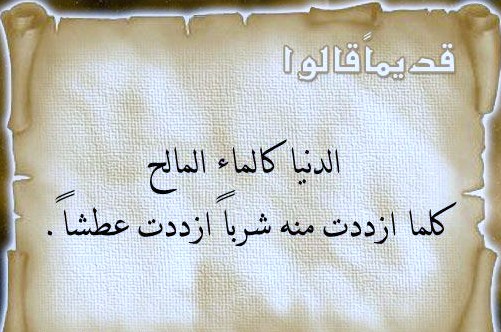 قديماً قالوا
الدنيا كالماء المالح
كلما ازددت منه شرباً ازددت عطشاً .